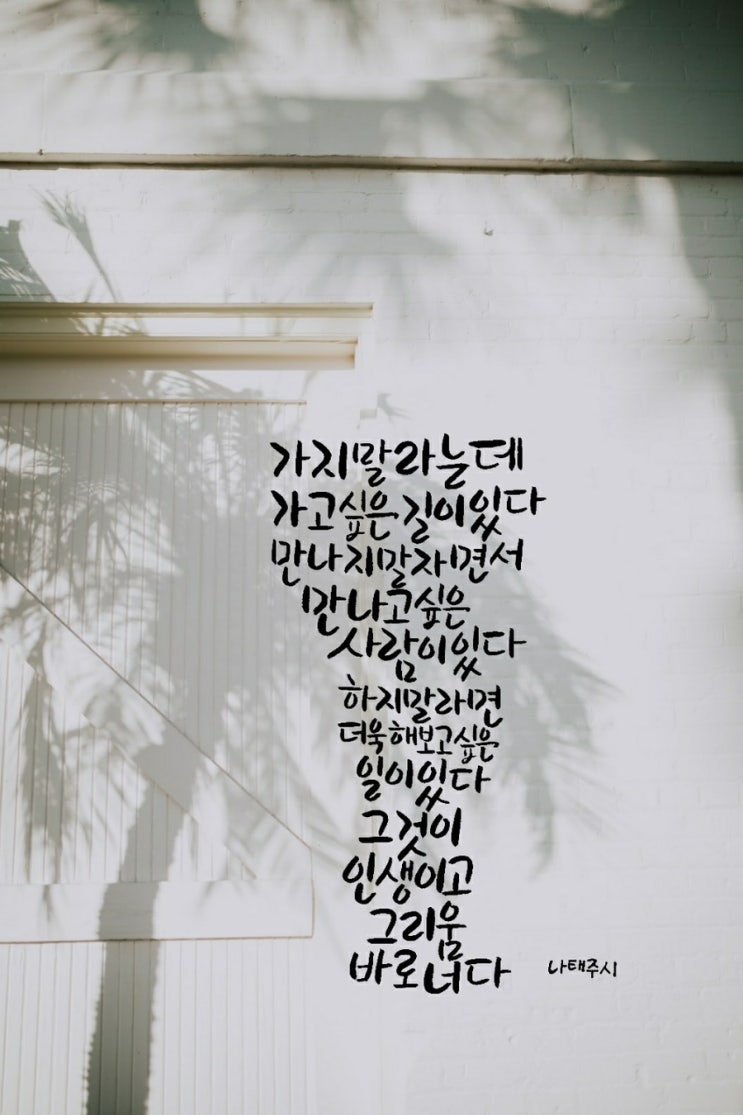 가지말라는데
가고싶은 길이있다
만나지말자면서
만나고싶은
사람이있다
하지말라면
더욱해보고싶은
일이있다
그것이
인생이고
그리움
바로너다
나태주시